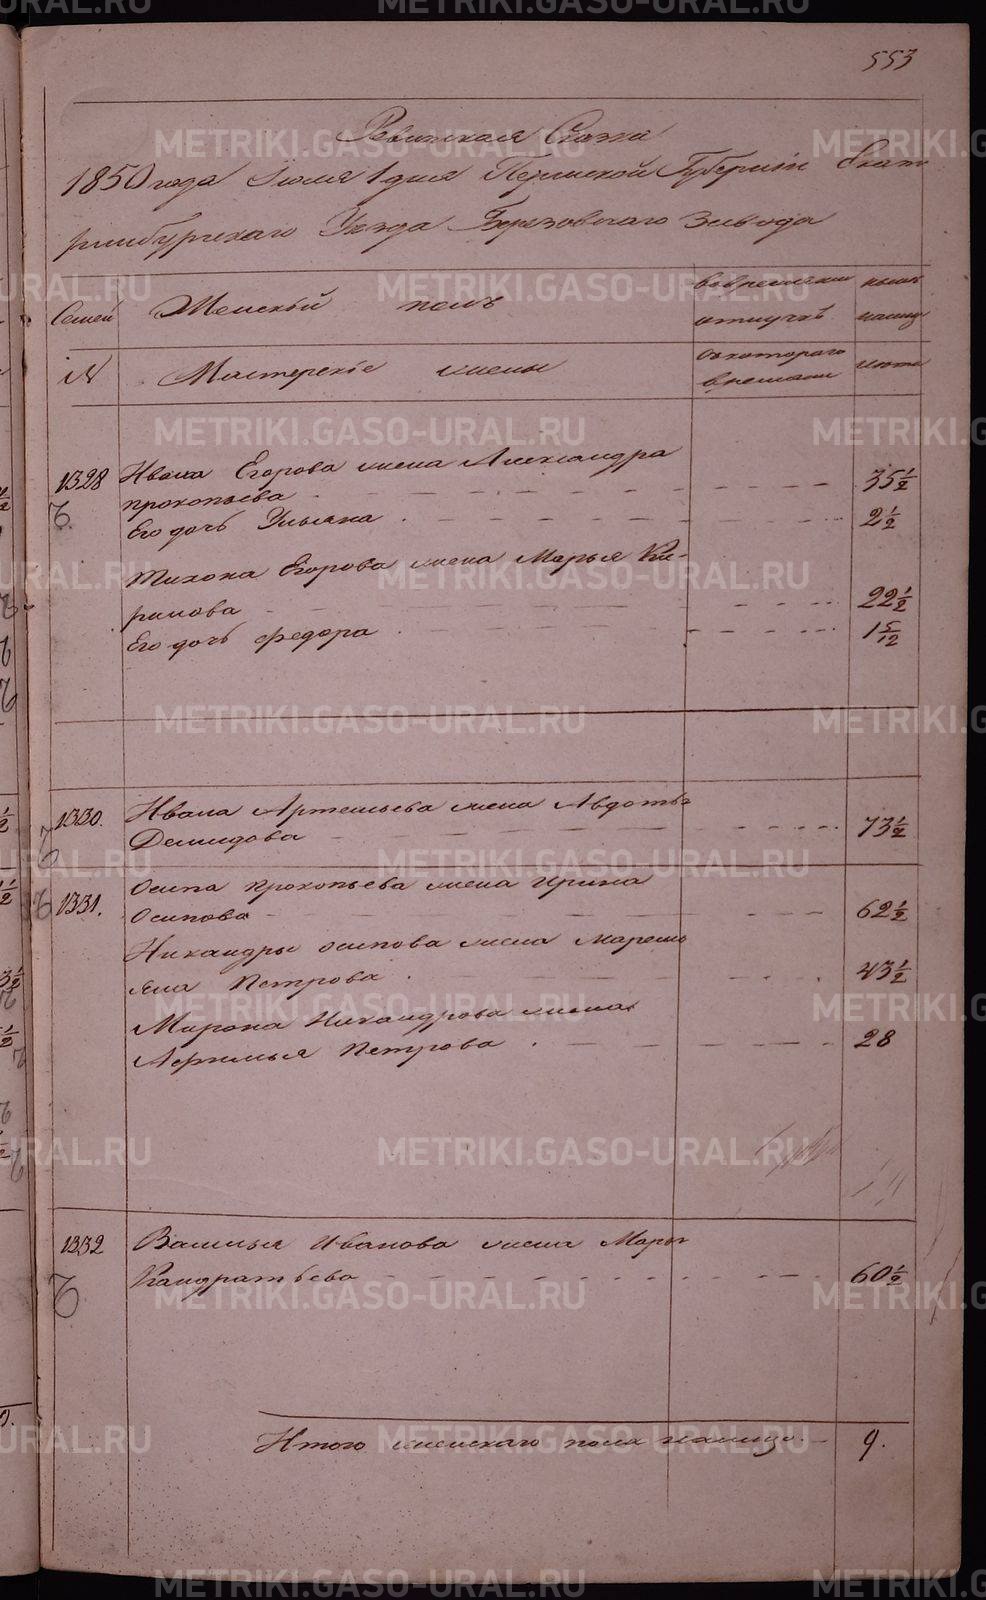 553
Ревизская Сказка
1850 года Июля 1 дня Пермской Губернии Екате
ринбургскаго Уезда Березовскаго Завода
Семей Женский полъ вовременной ныне
отлучке налицо
№ Мастерскіе жены съ котораго
времени лета
1328 Ивана Егорова жена Александра
прокопьева 35 1/2
Его дочь Ульяна 2 1/2
Тихона Егорова жена Марья Ки-
рилова 22 1/2
Его дочь Федора 1 5/12
1330. Ивана Артемьева жена Авдотья
Демидова 73 1/2
1331. Осипа прокопьева жена Ирина
Осипова 62 1/2
Никандры осипова жена Маремь
яна Петрова 43 1/2
Мирона Никандрова жена
Афимья Петрова 28
1332 Василья Иванова жена Марья
Кондратьева 60 1/2
Итого женскаго пола налицо 9.
METRIKI.GASO-URAL.RU